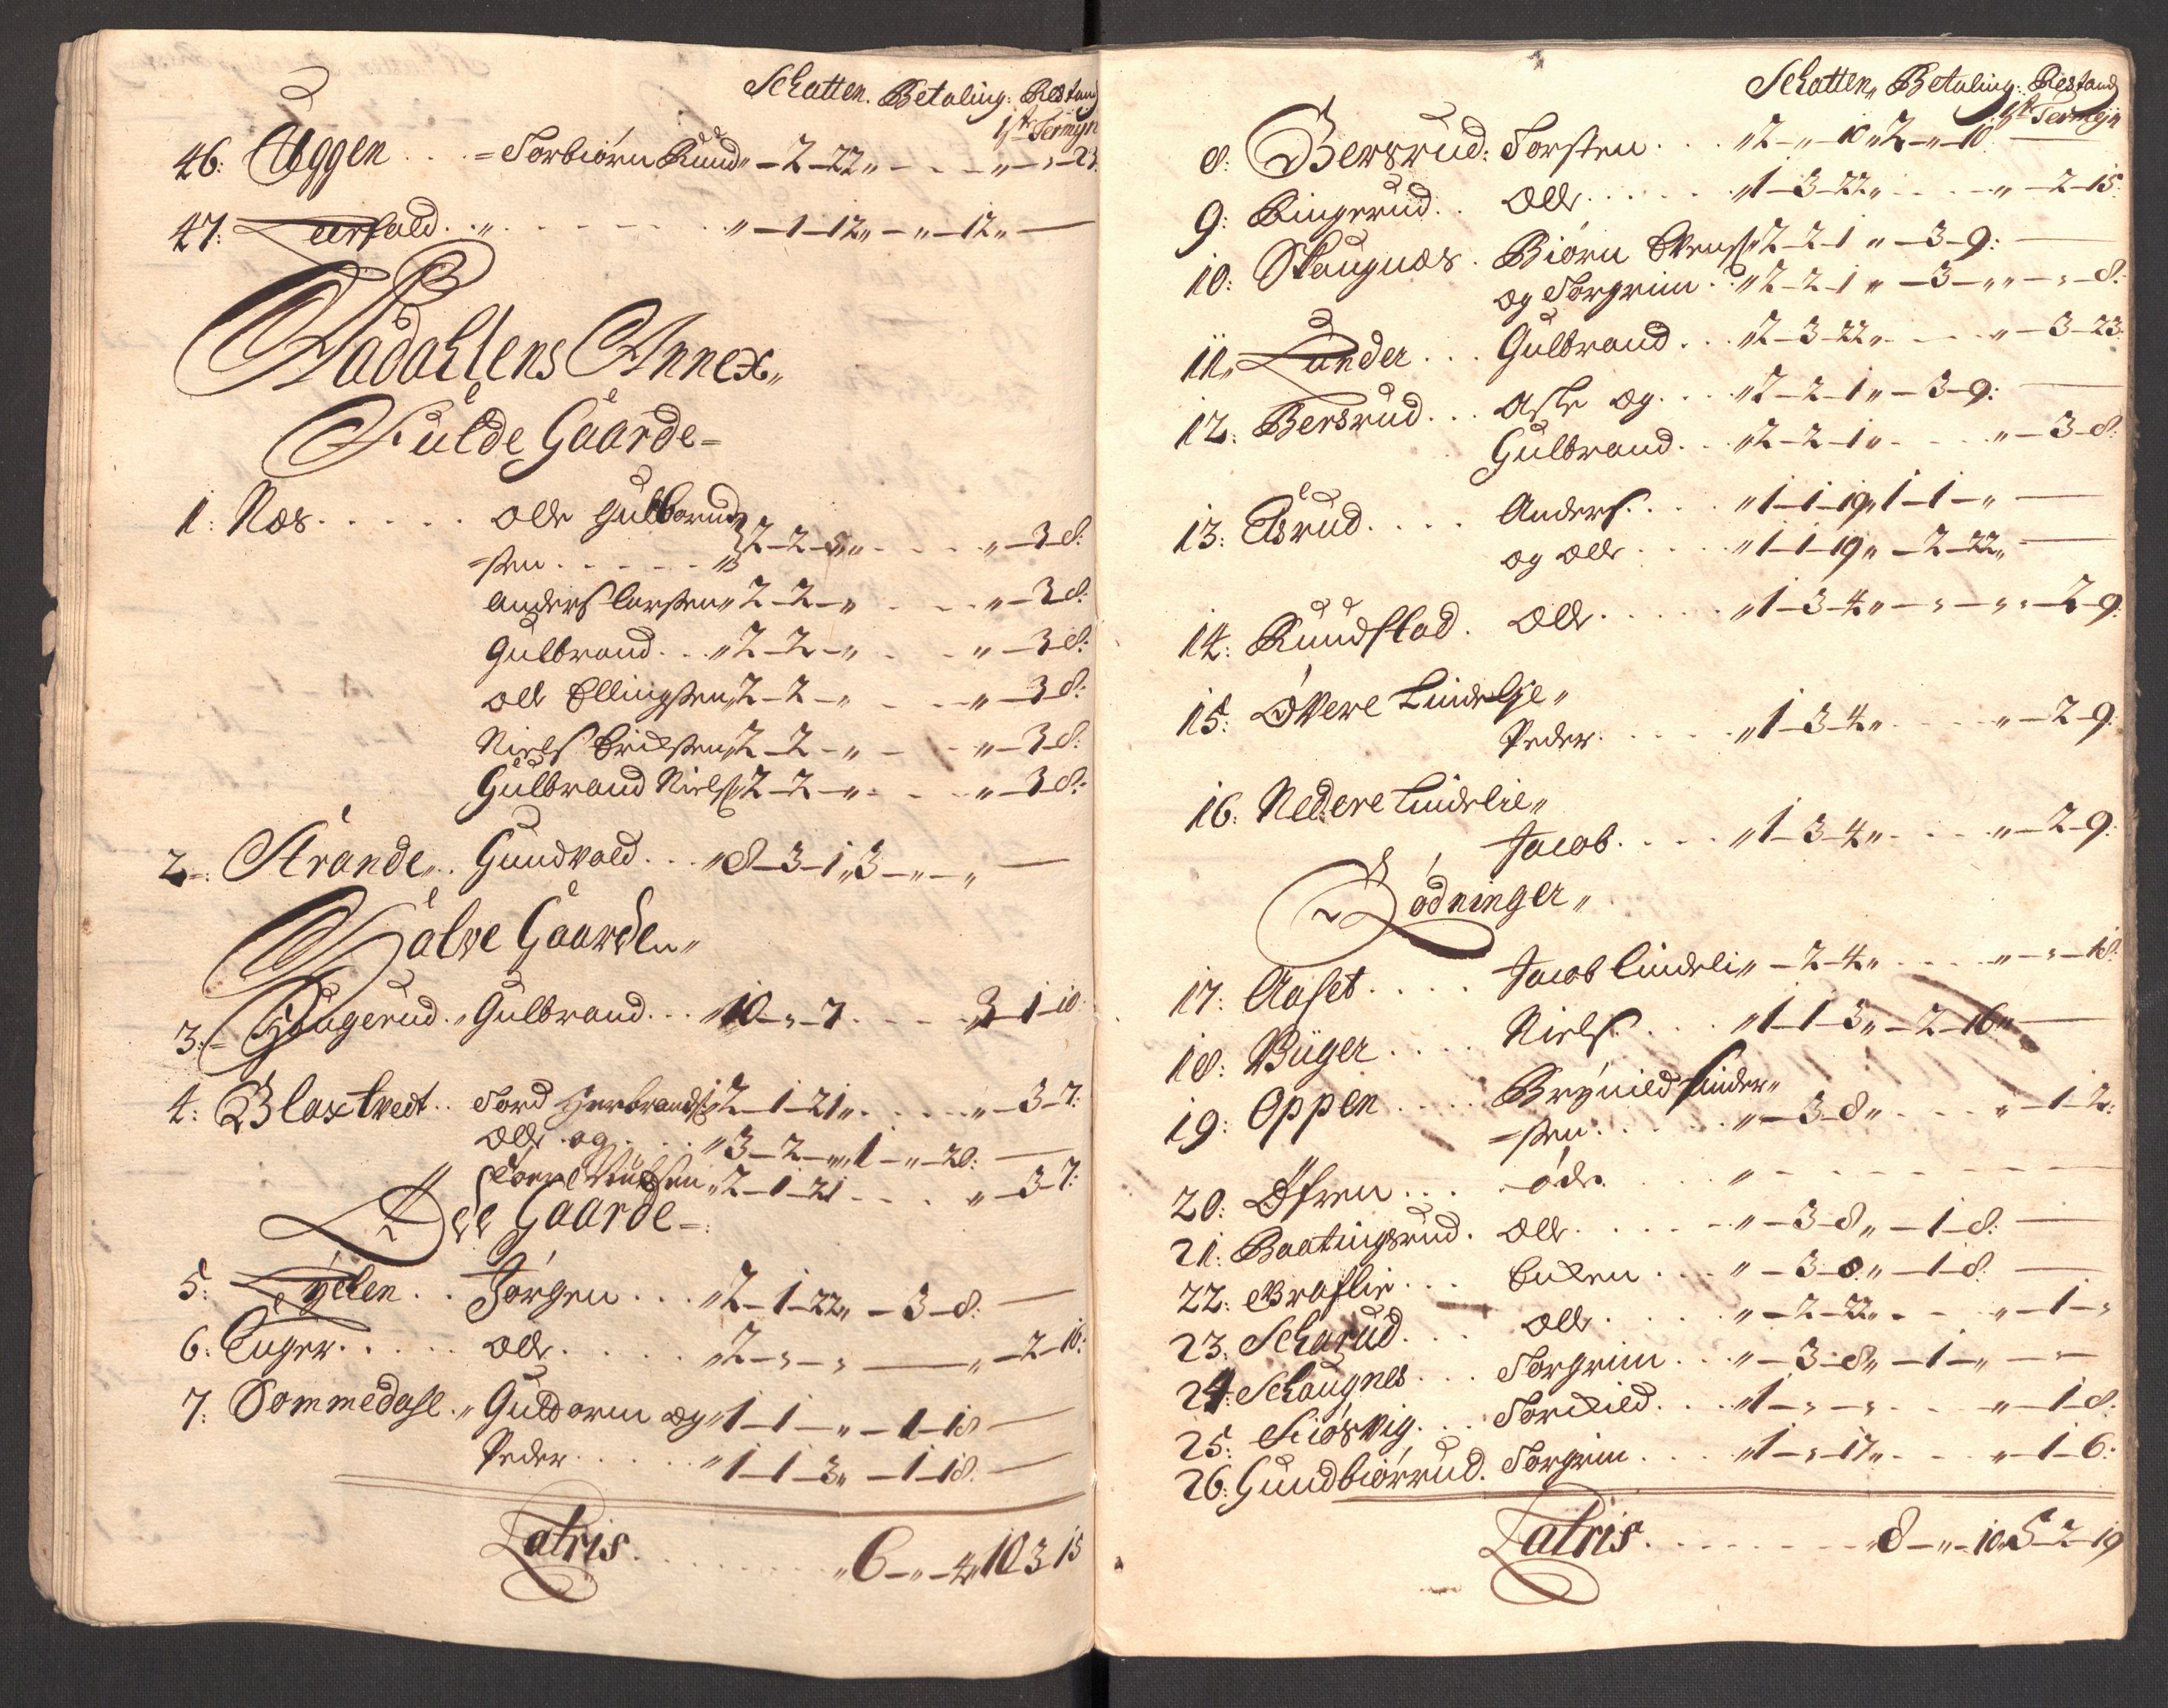 Schatten. Betaling: Restand
1ste Termyn
46: Uggen . . . = Torbiørn Ruud „ - 2 - 22 „ - - - „ - „ - 23.
47: Leerfald . . „ - - - - - „ - 1 - 12 „ - „ - 12 „ —
Aadahlens Annex„
Fulde Gaarde =
1: Næs . . . . . Olle Gulbrand
= sen . . . . . „ 2 - 2 - „ - - - „ - 3 - 8:
Anders Larsen „ 2 - 2 - „ - - - „ - 3 - 8:
Gulbrand . . . „ 2 - 2 - „ - - - „ - 3 - 8:
Olle Ellingsen „ 2 - 2 - „ - - - „ - 3 - 8:
Niels Eriksen „ 2 - 2 - „ - - - „ - 3 - 8:
Gulbrand Niels „ 2 - 2 - „ - - - „ - 3 - 8:
2: Strande „ . Gundvald . . . „ 8 - 3 - 1 „ 3 - „ - „ —
Halve Gaarde „
3: Hougerud . „ Gulbrand . . . „ 10 - „ - 7 . - - - 3 - 1 - 10:
4: Blaxtvedt . . Tord Herbrands „ 2 - 1 - 21 „ . - - - „ - 3 - 7:
Olle og . . . „ 3 - 2 - „ „ 1 - „ - 20: —
„ 2 - 1 - 21 - - - „ - 3 - 7:
Øde Gaarde =
5: . . Jørgen . . . „ 2 - 1 - 22 „ - 3 - 8: —
6: Enger . . . . . Olle . . . . . „ 2 - „ - „ — „ - 2 - 16:
7: Sommedahl . „ Guldorm og „ 1 - 1 - „ - 1 - 18 —
Peder . . . . . „ 1 - 1 - 3 „ - 1 - 18. —
Latris . . . . . . . „ 6 - „ - 4 „ 10 3 15
Schatten „ Betaling: Restand
1ste Termyn
8: Bersrud: Torsten . . . „ 2 - „ - 10 „ 2 - „ - 10: —
9: Ringerud . . Olle . . . . . „ 1 - 3 - 22 „ - - - „ - 2 - 15:
10: Skaugnæs . Biørn Svens „ 2 - 2 - 1 „ - 3 - 9: —
og Torgrim . . „ 2 - 2 - 1 „ - 3 - „ „ - „ - 8:
11 „ Lander . . . Gulbrand . . . „ 2 - 3 - 22 „ - - - „ - 3 - 23:
12: Bersrud . . . Asle og . . . „ 2 - 2 - 1 „ - 3 - 9: —
Gulbrand . . „ 2 - 2 - 1 „ . - - - „ - 3 - 8:
13: Elsrud . . . . Anders . . . „ 1 - 1 - 19 „ 1 - 1 - „ —
og Olle . . . . „ 1 - 1 - 19 „ - 2 - 22 „ —
14: Ruudstad . Olle . . . . . „ 1 - 3 - 4 „ - „ - „ „ - 2 - 9:
15: Øvere Lindelie „
Peder . . . . . „ 1 - 3 - 4 „ - - - „ - 2 - 9:
16: Nedere Lindelie „
Jacob . . . . „ 1 - 3 - 4 „ . - - - „ - 2 - 9:
Rødninger „
17: Aaset . . . . Jacob Lindeli „ - 2 - 4 „ . - - - „ - „ - 18:
18: Büger . . . . Niels . . . „ 1 - 1 - 3 „ - 2 - 16 „ —
19: Oppen . . . . Brynild
= sen . . . . . „ - 3 - 8 „ . - - - „ - 1 - 2:
20: Øfren . . . . øde . . . . „ - - - - - -
21: Baatingsrud . Olle . . . . . „ - 3 - 8 „ - 1 - 8: —
22: Braflie . . . Ericken . . . „ - 3 - 8 „ - 1 - 8: —
23: Scharud . . . Olle . . . . „ - 2 - 22 „ . - - „ - 1 - „
24: Schaugnes . . . Torgrim . . . „ - 3 - 8 „ - 1 - „ — „ —
25: Kiøsvig . . . Torkild . . . „ 1 - „ - „ . - - „ - 1 - 8.
26: Gundbiørrud . Torgrim . . . „ 1 - „ - 17 „ . - - „ - 1 - 6:
Latris . . . . . . . . „ 8 - „ - 10 „ 5 - 2 - 19